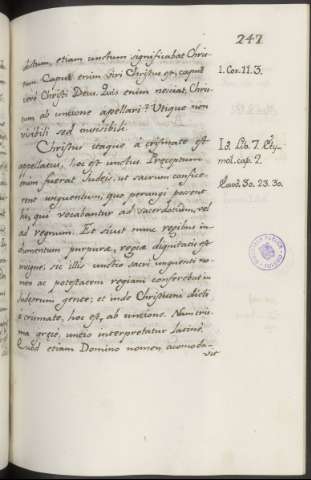 247
dictum, etiam unctum significabat Chris-
tum. Caput enim viri Christus est, caput
vero Christi Deus. Quis enim nesciat, Chris-
tum ab unctione apellari? Utique non
visibili sed invisibili.
1. Cor. 11. 3.
Christus itaque a crismate est
appellatus, hoc est unctus. Preceptum
enim fuerat Judeis, ut sacrum confice-
rent unguentum, quo perungi possent
hi, qui vocabantur ad sacerdotium, vel
ad regnum. Et sicut nunc regibus in-
dumentum purpuræ, regiæ dignitatis est
insigne, sic illis unctio sacri unguenti no-
men ac potestatem regiam conferebat in
Judeorum gente; et inde Christiani dicti
a crismate, hoc est, ab unctione. Nam cris-
ma grece, unctio interpretatur latine.
Quod etiam Domino nomen acomoda-
vit
Id. Lib. 7. Ety-
mol. cap. 2.
Exod. 30. 23. 30.